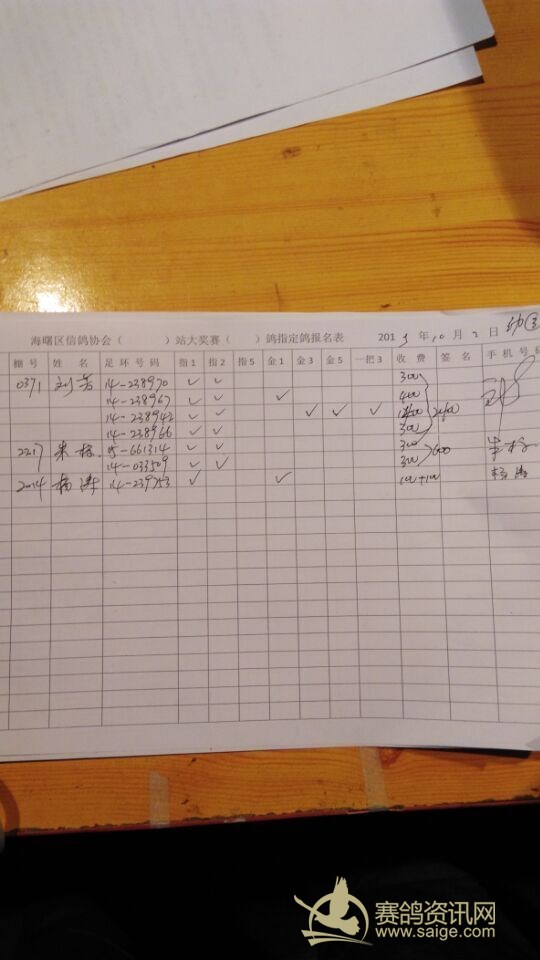 海曙区信鸽协会（ ）站大奖赛（ ）鸽指定鸽报名表 2015 年 10 月 2 日
棚号 姓名 足环号码 指1 指2 指5 金1 金3 金5 一把3 收费 签名 手机号码
0371 刘芳 14-238970 ✓ ✓ 300
14-238967 ✓ ✓ ✓ 400
14-238942 ✓ ✓ ✓ ✓ ✓
14-238966 ✓ ✓ 300
2217 朱 15-661314 ✓ ✓ 300 600
14-033509 ✓ ✓ 300
2014 杨涛 14-239753 ✓ ✓ 100+100 杨涛
赛鸽资讯网
www.saige.com